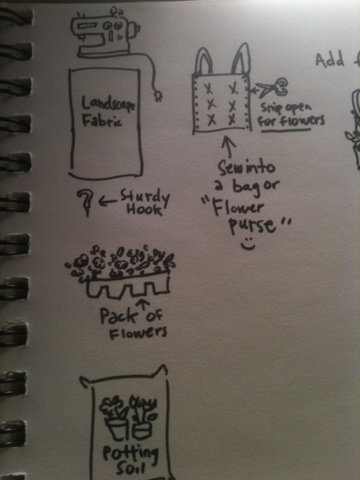 Landscape
Fabric
Sturdy
Hook
Pack of
Flowers
Potting
Soil
Snip open
for flowers
Sew into
a bag or
"Flower
purse"
Add